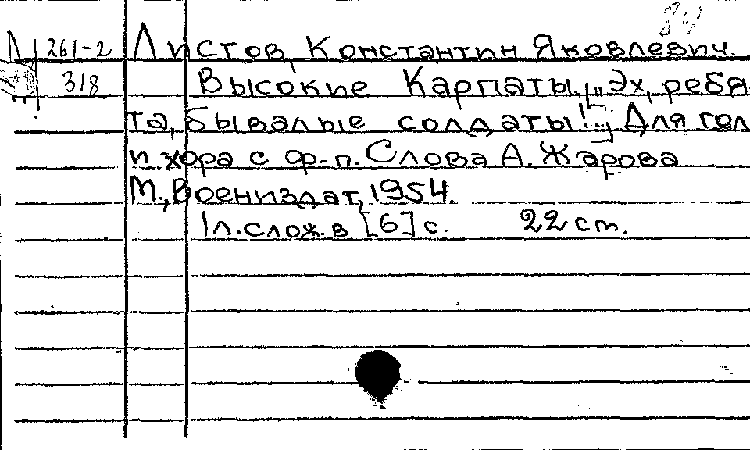 261-2 Листов, Константин Яковлевич.
318 Высокие Карпаты. [„Эх, ребя
та, бывалые солдаты!..”] Для гол
и хора с ф-п. Слова А. Жарова
М., Воениздат, 1954.
1л. слож. в [6] с. 22 cm.